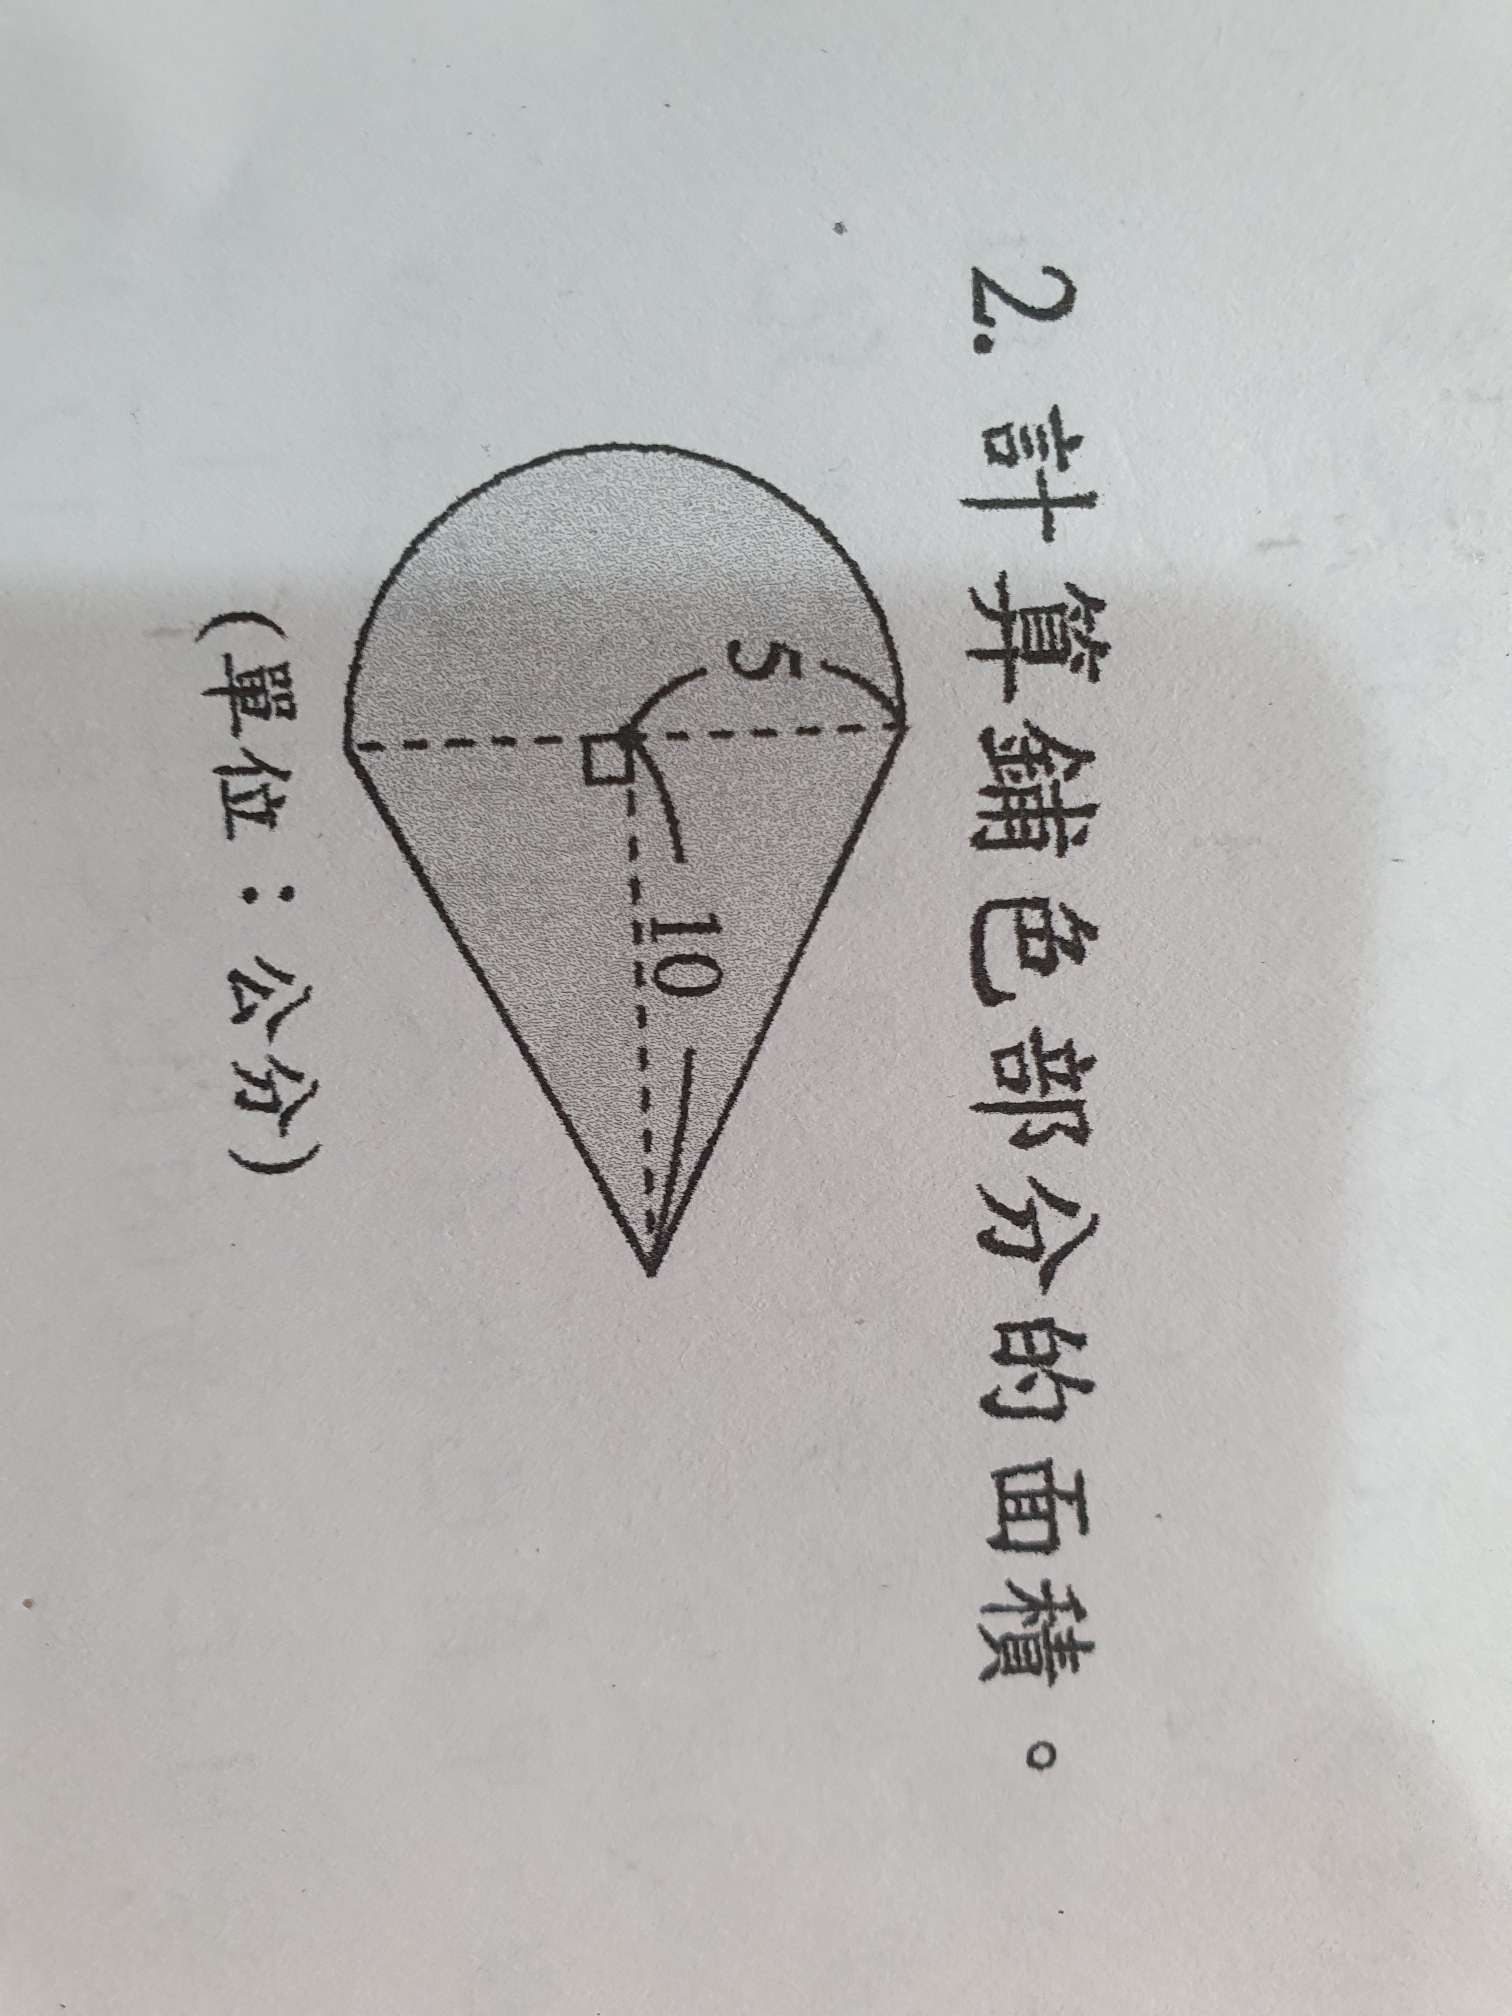 2. 計算鋪色部分的面積。
5
10
(單位：公分)